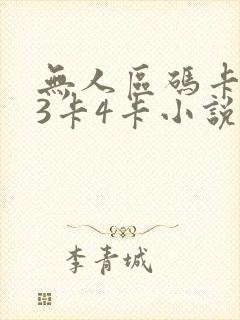 無人區碼卡
3卡4卡小說
李青城